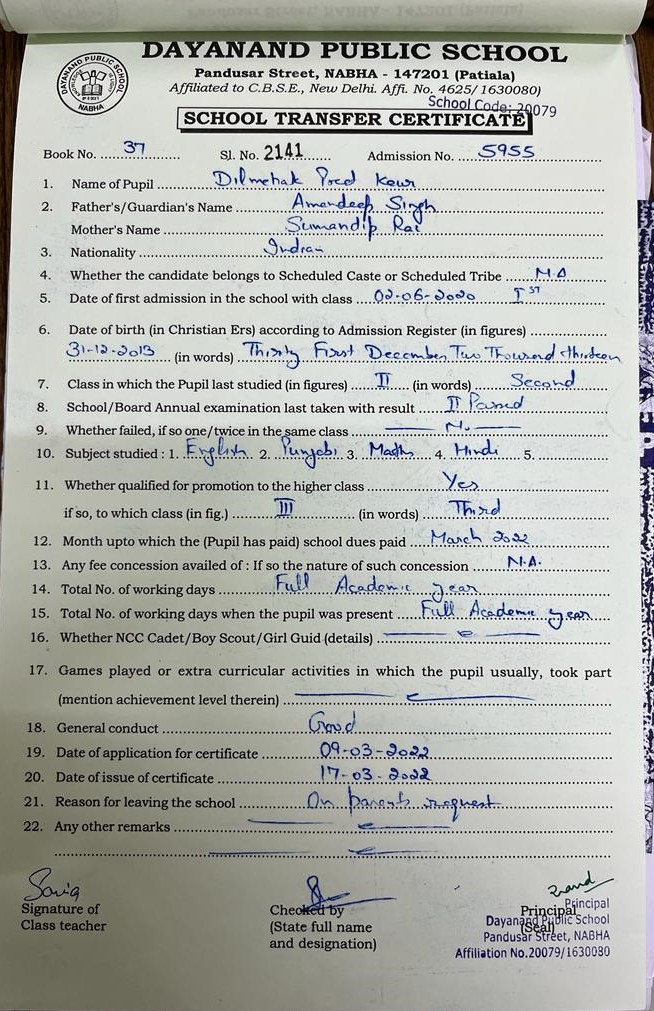 DAYANAND PUBLIC SCHOOL
Pandusar Street, NABHA - 147201 (Patiala)
Affiliated to C.B.S.E., New Delhi. Affi. No. 4625/ 1630080)
School Code: 20079
DAYANAND PUBLIC SCHOOL NABHA
SCHOOL TRANSFER CERTIFICATE
Book No. 37 Sl. No. 2141 Admission No. 5955
1. Name of Pupil Dilmehak Kaur
2. Father's/Guardian's Name Amandeep Singh
Mother's Name Sumandip Rai
3. Nationality Indian
4. Whether the candidate belongs to Scheduled Caste or Scheduled Tribe N.A
5. Date of first admission in the school with class 02-06-2020 IST
6. Date of birth (in Christian Ers) according to Admission Register (in figures)
31-12-2013 (in words) Thirty First December Two Thousand thirteen
7. Class in which the Pupil last studied (in figures) II (in words) Second
8. School/Board Annual examination last taken with result II Passed
9. Whether failed, if so one/twice in the same class
10. Subject studied : 1. English 2. Punjabi 3. Maths 4. Hindi 5.
11. Whether qualified for promotion to the higher class Yes
if so, to which class (in fig.) III (in words) Third
12. Month upto which the (Pupil has paid) school dues paid March 2022
13. Any fee concession availed of : If so the nature of such concession N.A.
14. Total No. of working days Full Academic year
15. Total No. of working days when the pupil was present Full Academic year
16. Whether NCC Cadet/Boy Scout/Girl Guid (details)
17. Games played or extra curricular activities in which the pupil usually, took part
(mention achievement level therein)
18. General conduct Good
19. Date of application for certificate 09-03-2022
20. Date of issue of certificate 17-03-2022
21. Reason for leaving the school On parents request
22. Any other remarks
Signature of
Class teacher
Checked by
(State full name
and designation)
Principal
(Seal)
Principal
Dayanand Public School
Pandusar Street, NABHA
Affiliation No.20079/1630080